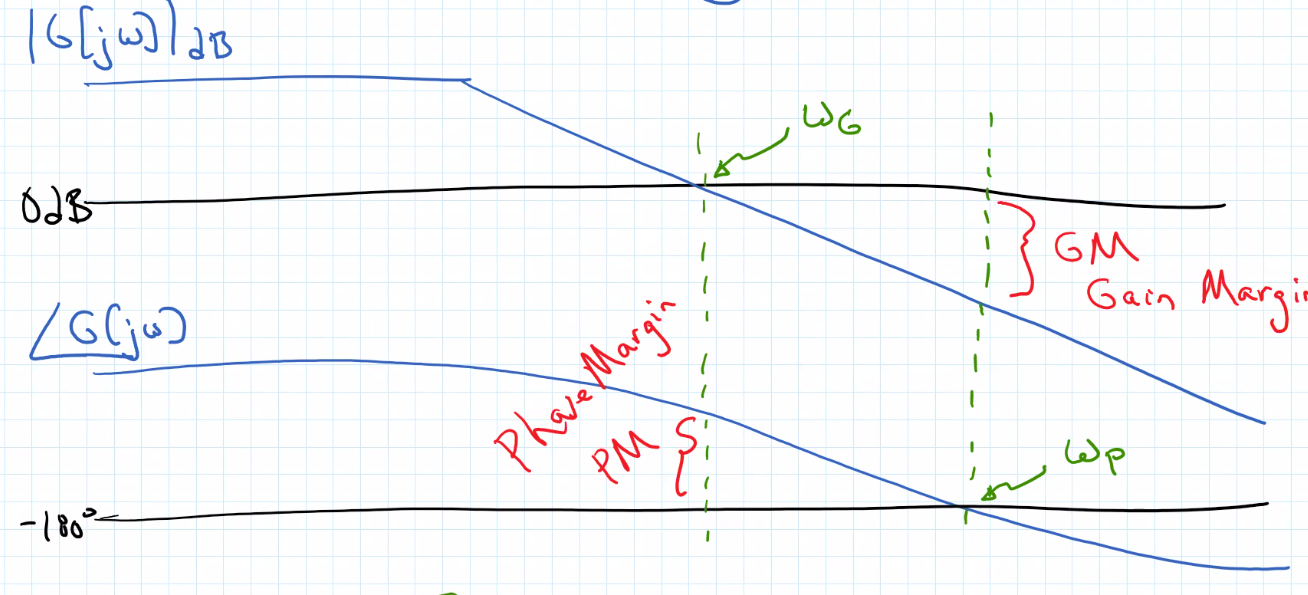 |G[jω)|dB
ωG
0dB
GM
Gain Margin
∠G(jω)
Phase Margin
PM
ωP
-180°